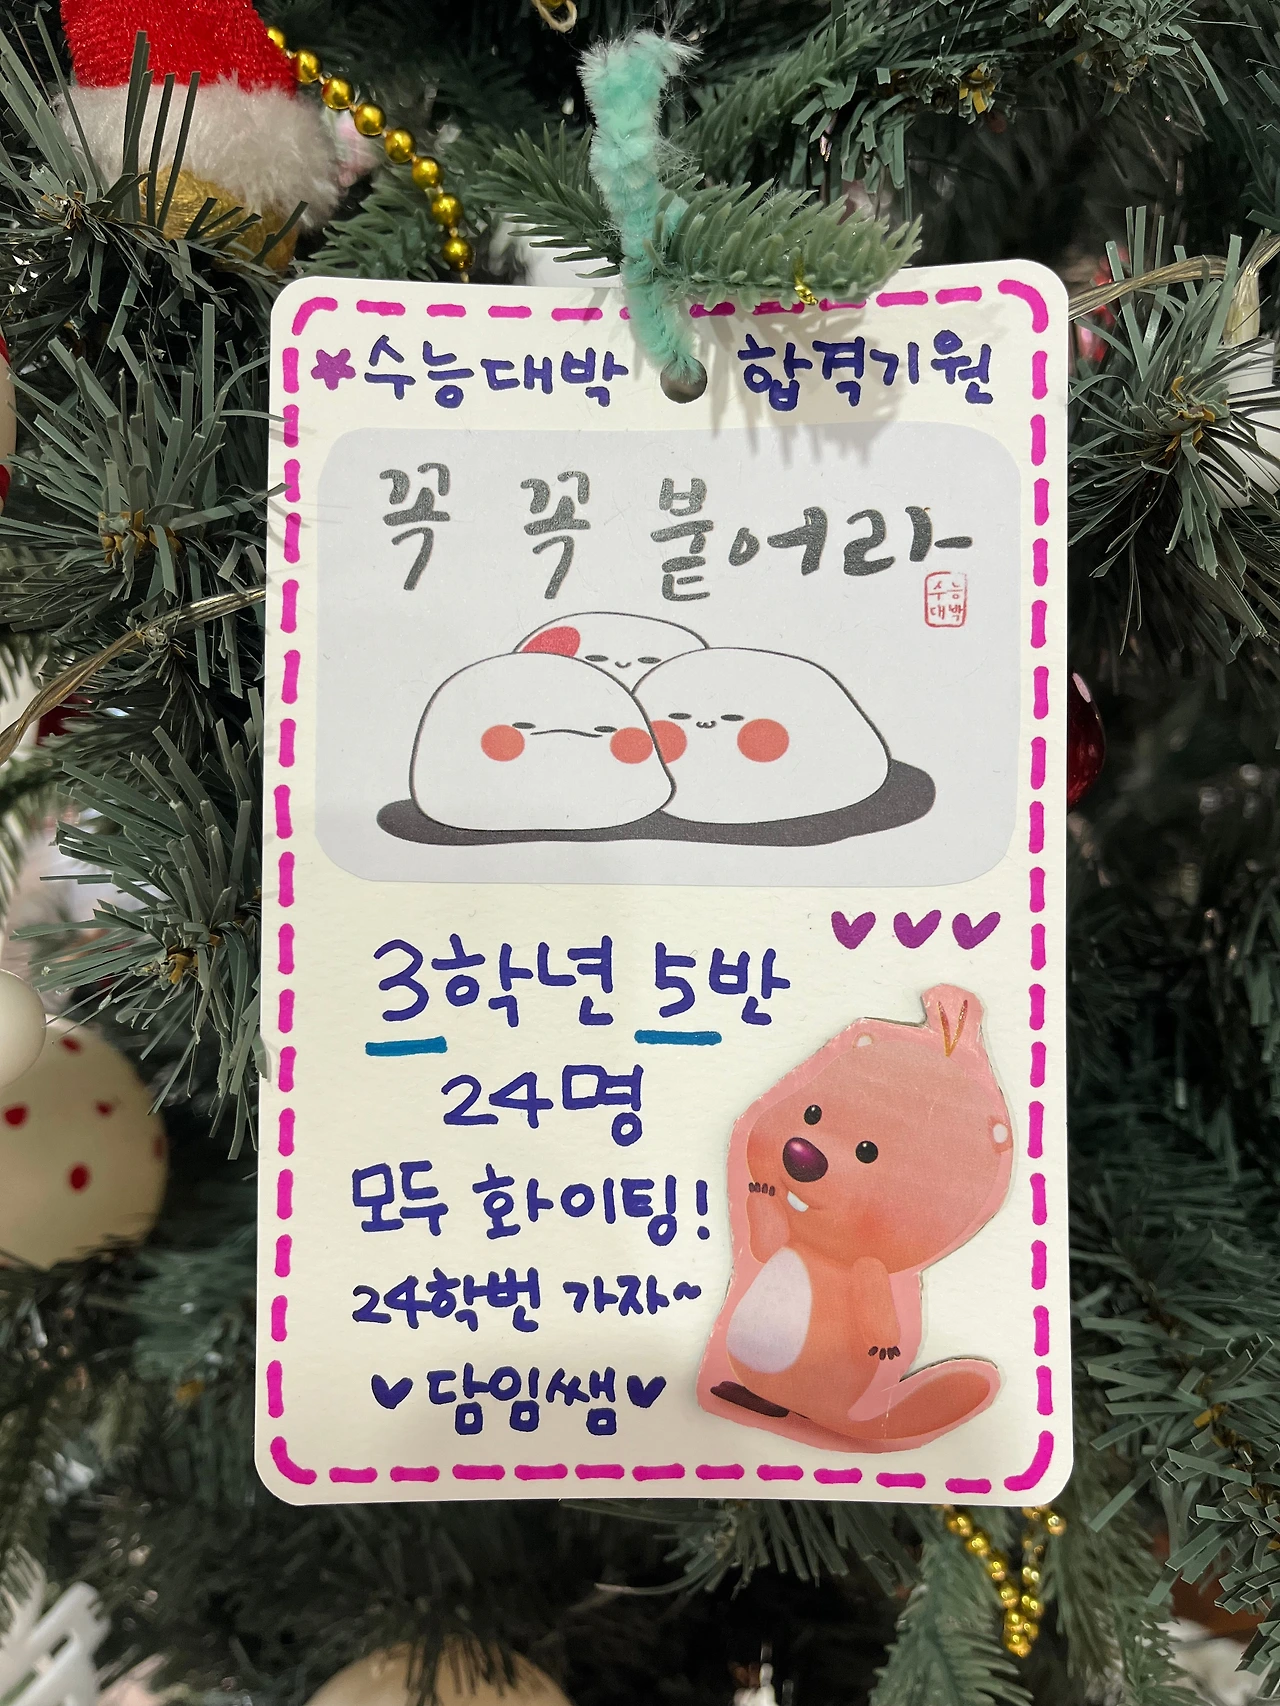 *수능대박 합격기원
꼭 꼭 붙어라
수능
대박
3학년 5반
24명
모두 화이팅!
24학번 가자~
♥담임쌤♥